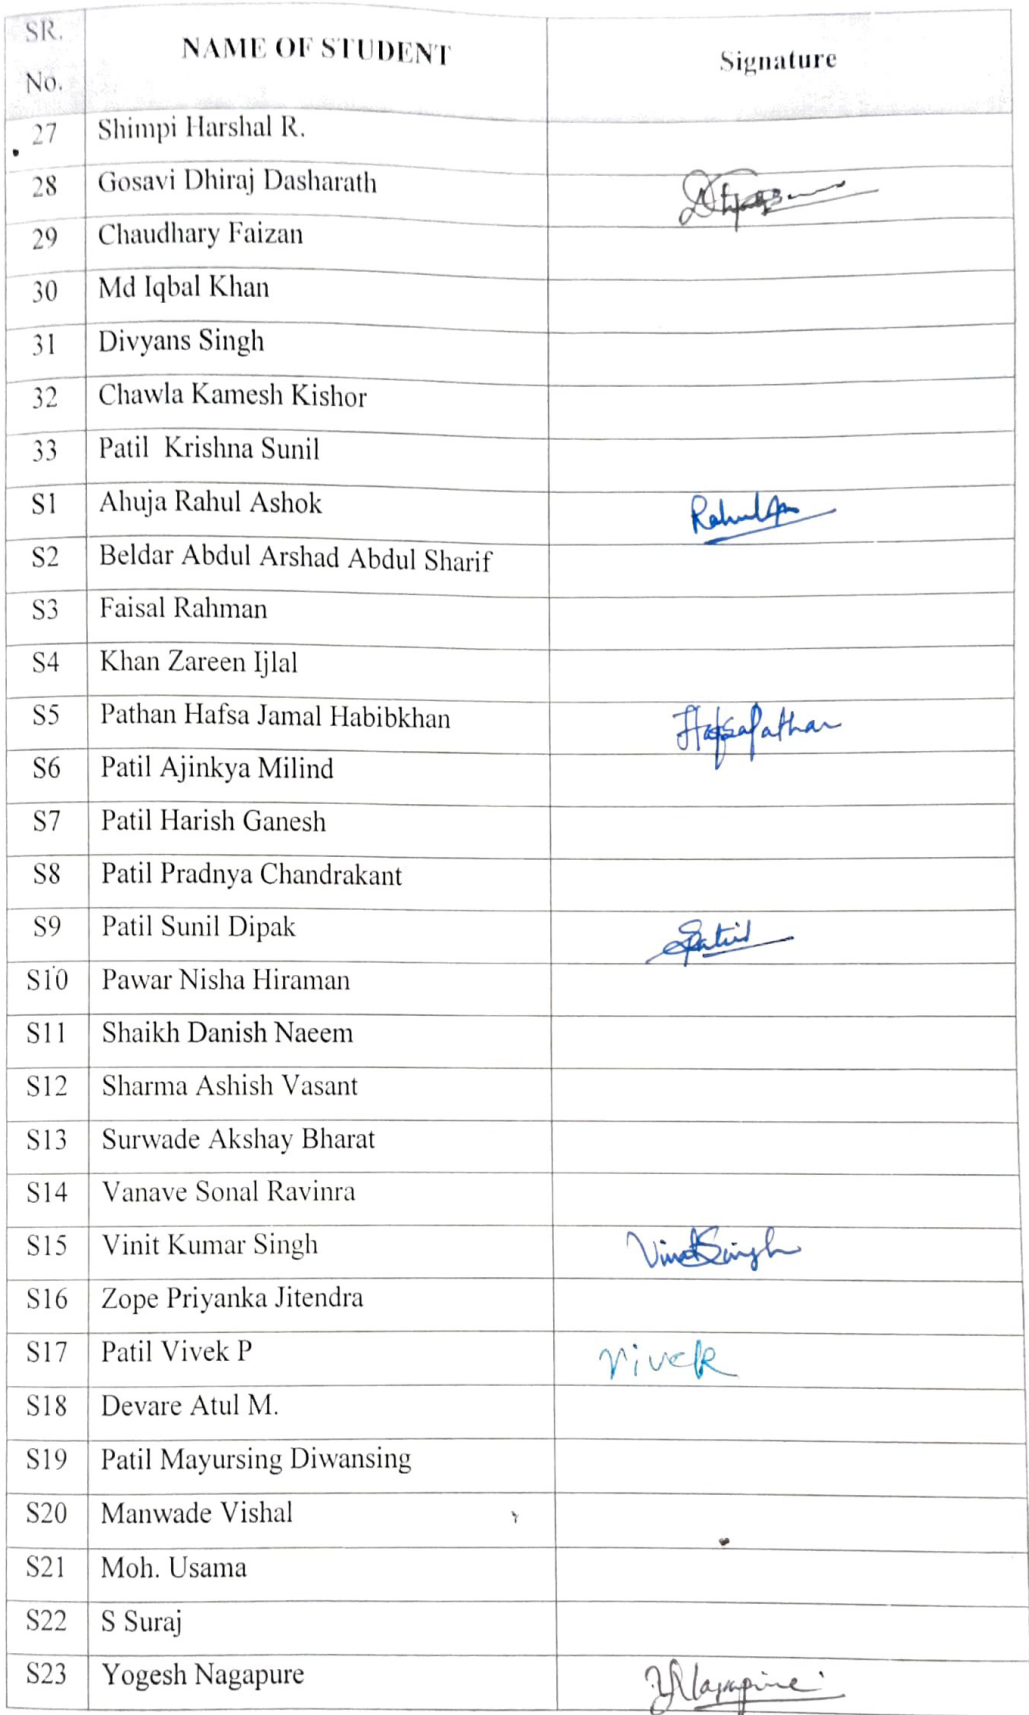 SR. No. NAME OF STUDENT Signature
27 Shimpi Harshal R.
28 Gosavi Dhiraj Dasharath
29 Chaudhary Faizan
30 Md Iqbal Khan
31 Divyans Singh
32 Chawla Kamesh Kishor
33 Patil Krishna Sunil
S1 Ahuja Rahul Ashok
S2 Beldar Abdul Arshad Abdul Sharif
S3 Faisal Rahman
S4 Khan Zareen Ijlal
S5 Pathan Hafsa Jamal Habibkhan HafsaPathan
S6 Patil Ajinkya Milind
S7 Patil Harish Ganesh
S8 Patil Pradnya Chandrakant
S9 Patil Sunil Dipak
S10 Pawar Nisha Hiraman
S11 Shaikh Danish Naeem
S12 Sharma Ashish Vasant
S13 Surwade Akshay Bharat
S14 Vanave Sonal Ravinra
S15 Vinit Kumar Singh VinitSingh
S16 Zope Priyanka Jitendra
S17 Patil Vivek P Vivek
S18 Devare Atul M.
S19 Patil Mayursing Diwansing
S20 Manwade Vishal
S21 Moh. Usama
S22 S Suraj
S23 Yogesh Nagapure